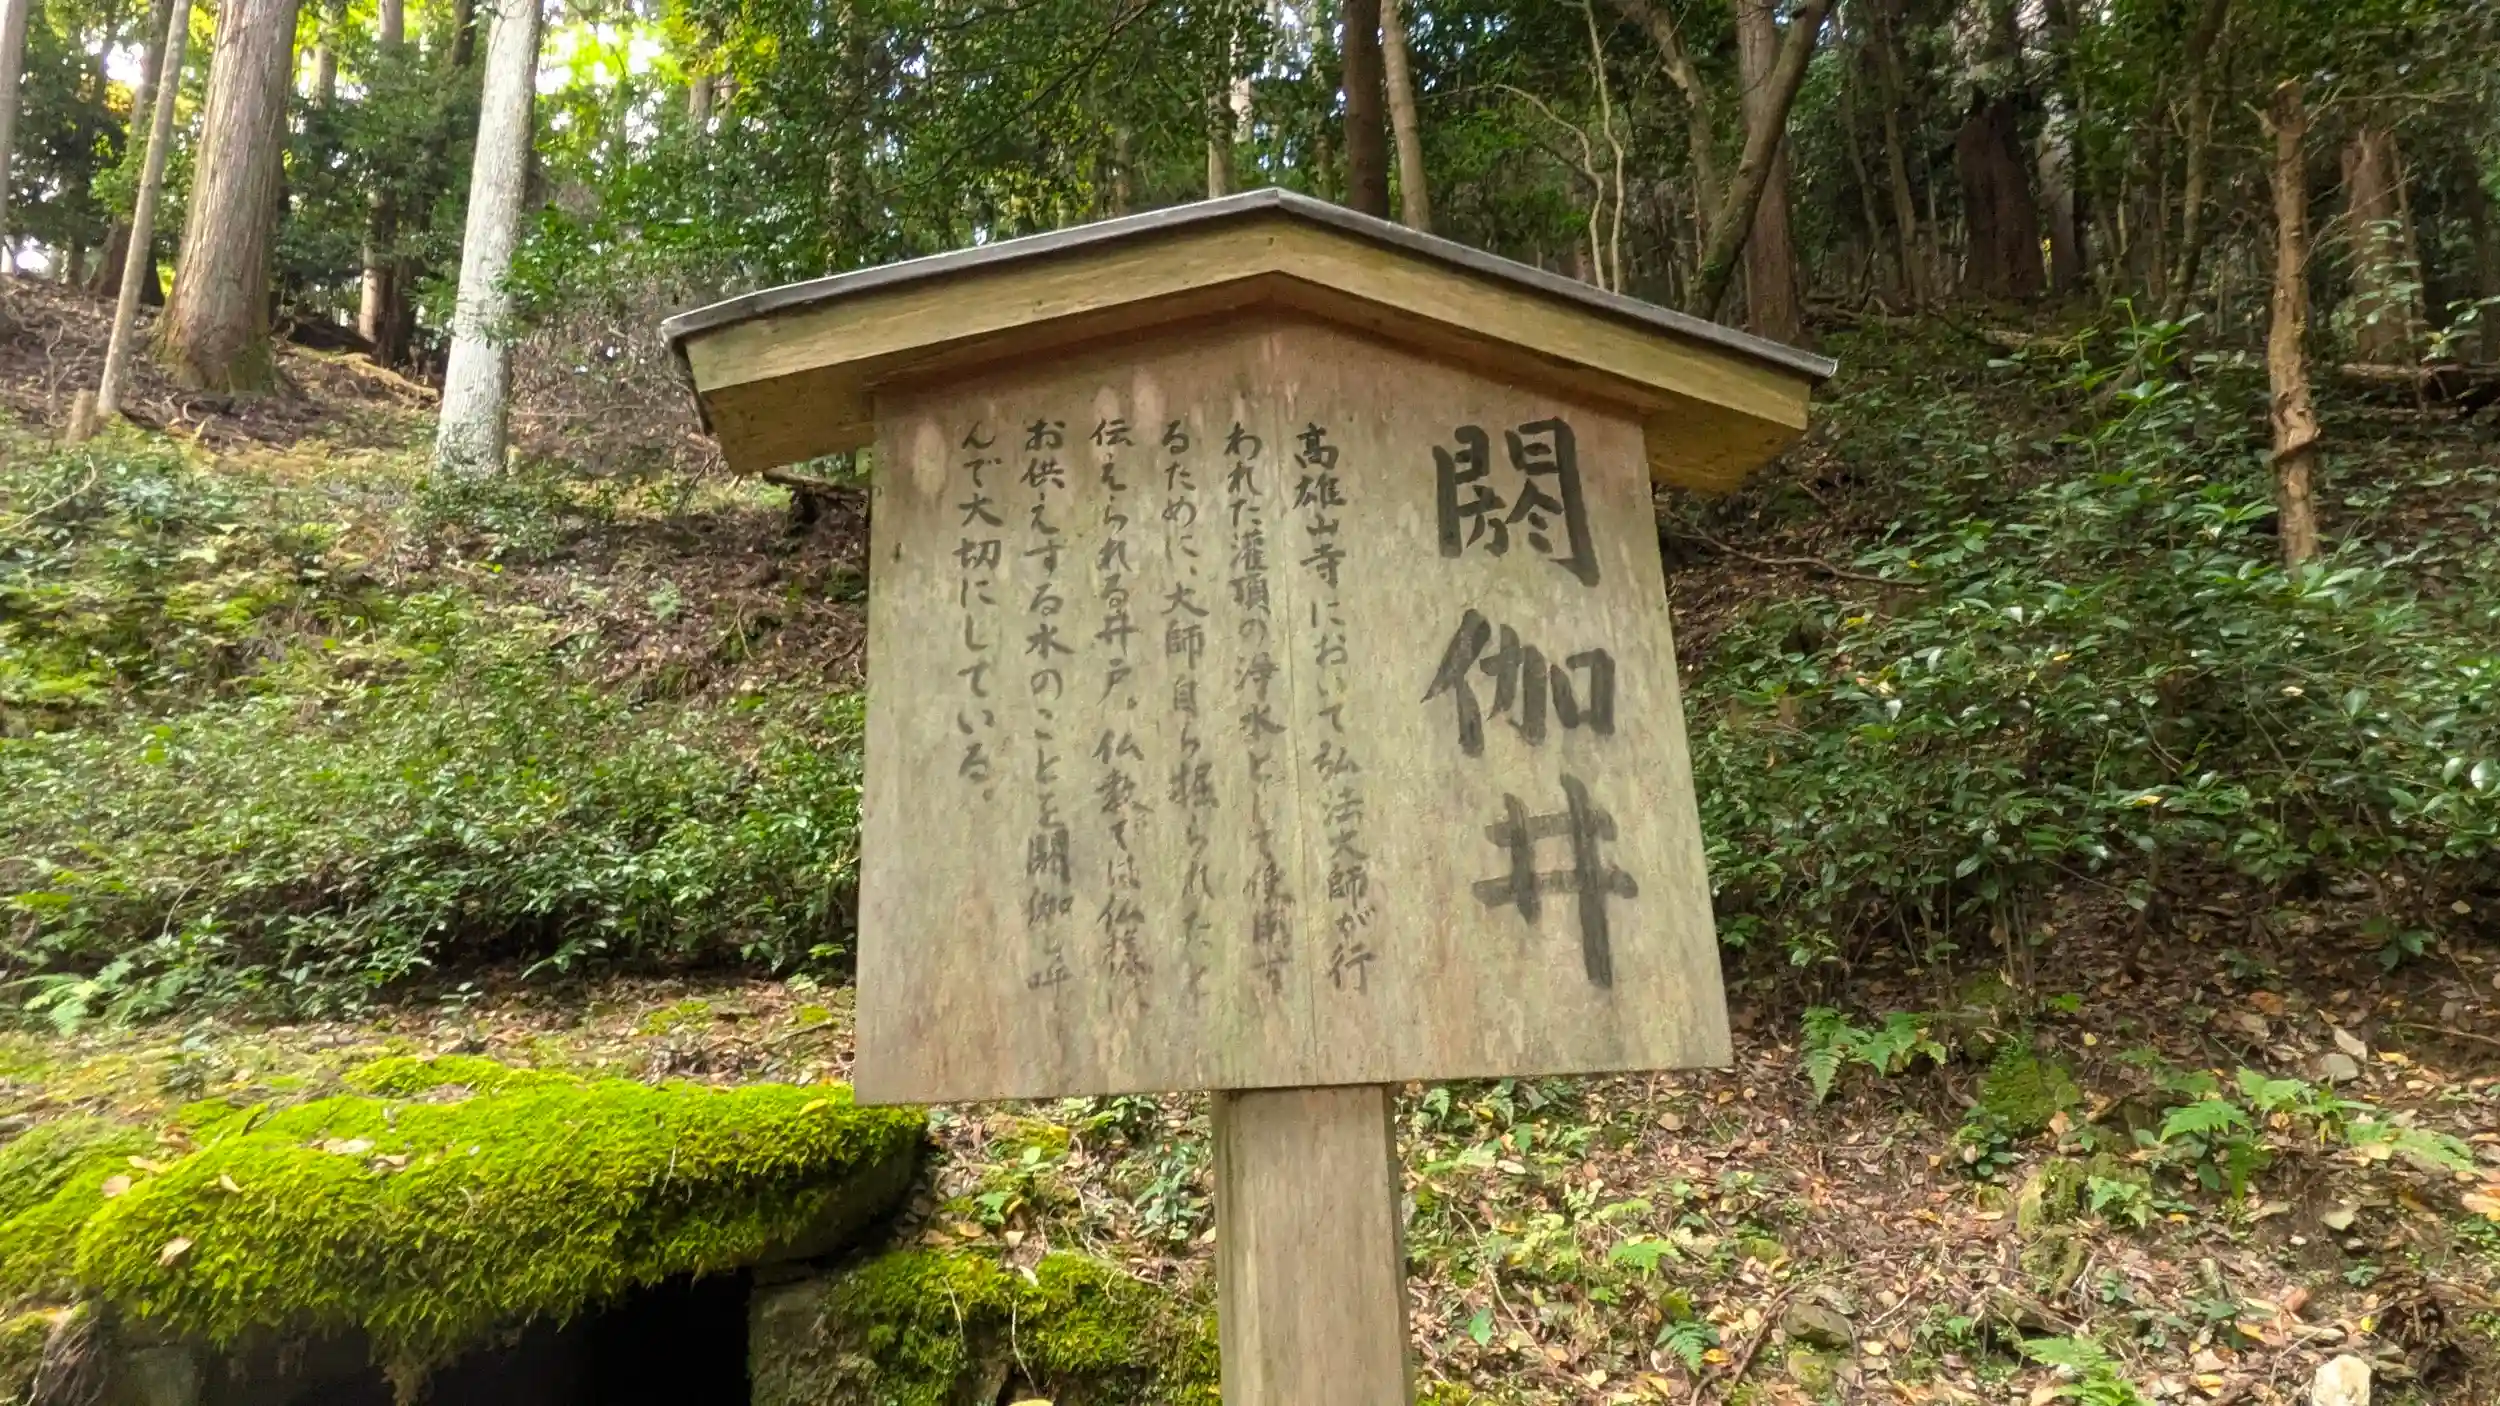 閼伽井
高雄山寺において弘法大師が行
われた灌頂の浄水として使用す
るために、大師自ら掘られたと
伝えられる井戸。仏教では仏様に
お供えする水のことを閼伽と呼
んで大切にしている。